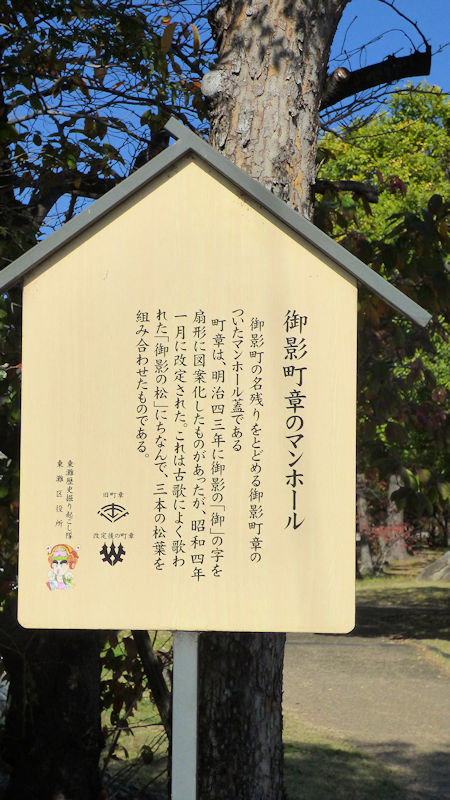 御影町章のマンホール
御影町の名残りをとどめる御影町章の
ついたマンホール蓋である
町章は、明治四三年に御影の「御」の字を
扇形に図案化したものがあったが、昭和四年
一月に改定された。これは古歌によく歌わ
れた「御影の松」にちなんで、三本の松葉を
組み合わせたものである。
旧町章
改定後の町章
東灘歴史掘り起こし隊
東灘区役所